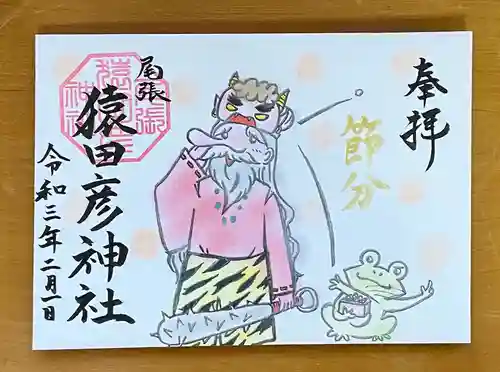 奉拝
節分
尾張
猿田彦神社
令和三年二月一日